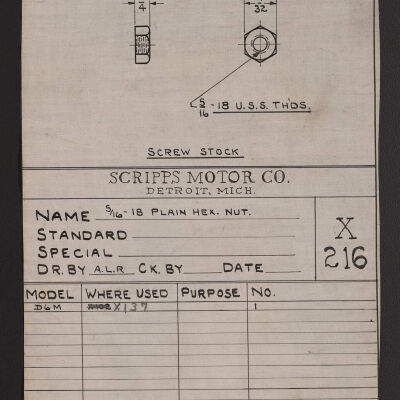 4
32
5/16 - 18 U.S.S. TH'DS.
SCREW STOCK
SCRIPPS MOTOR CO.
DETROIT, MICH.
NAME 5/16 - 18 PLAIN HEX. NUT.
STANDARD
SPECIAL
DR. BY A.L.R CK. BY DATE
X
216
MODEL WHERE USED PURPOSE NO.
D6M X137 1